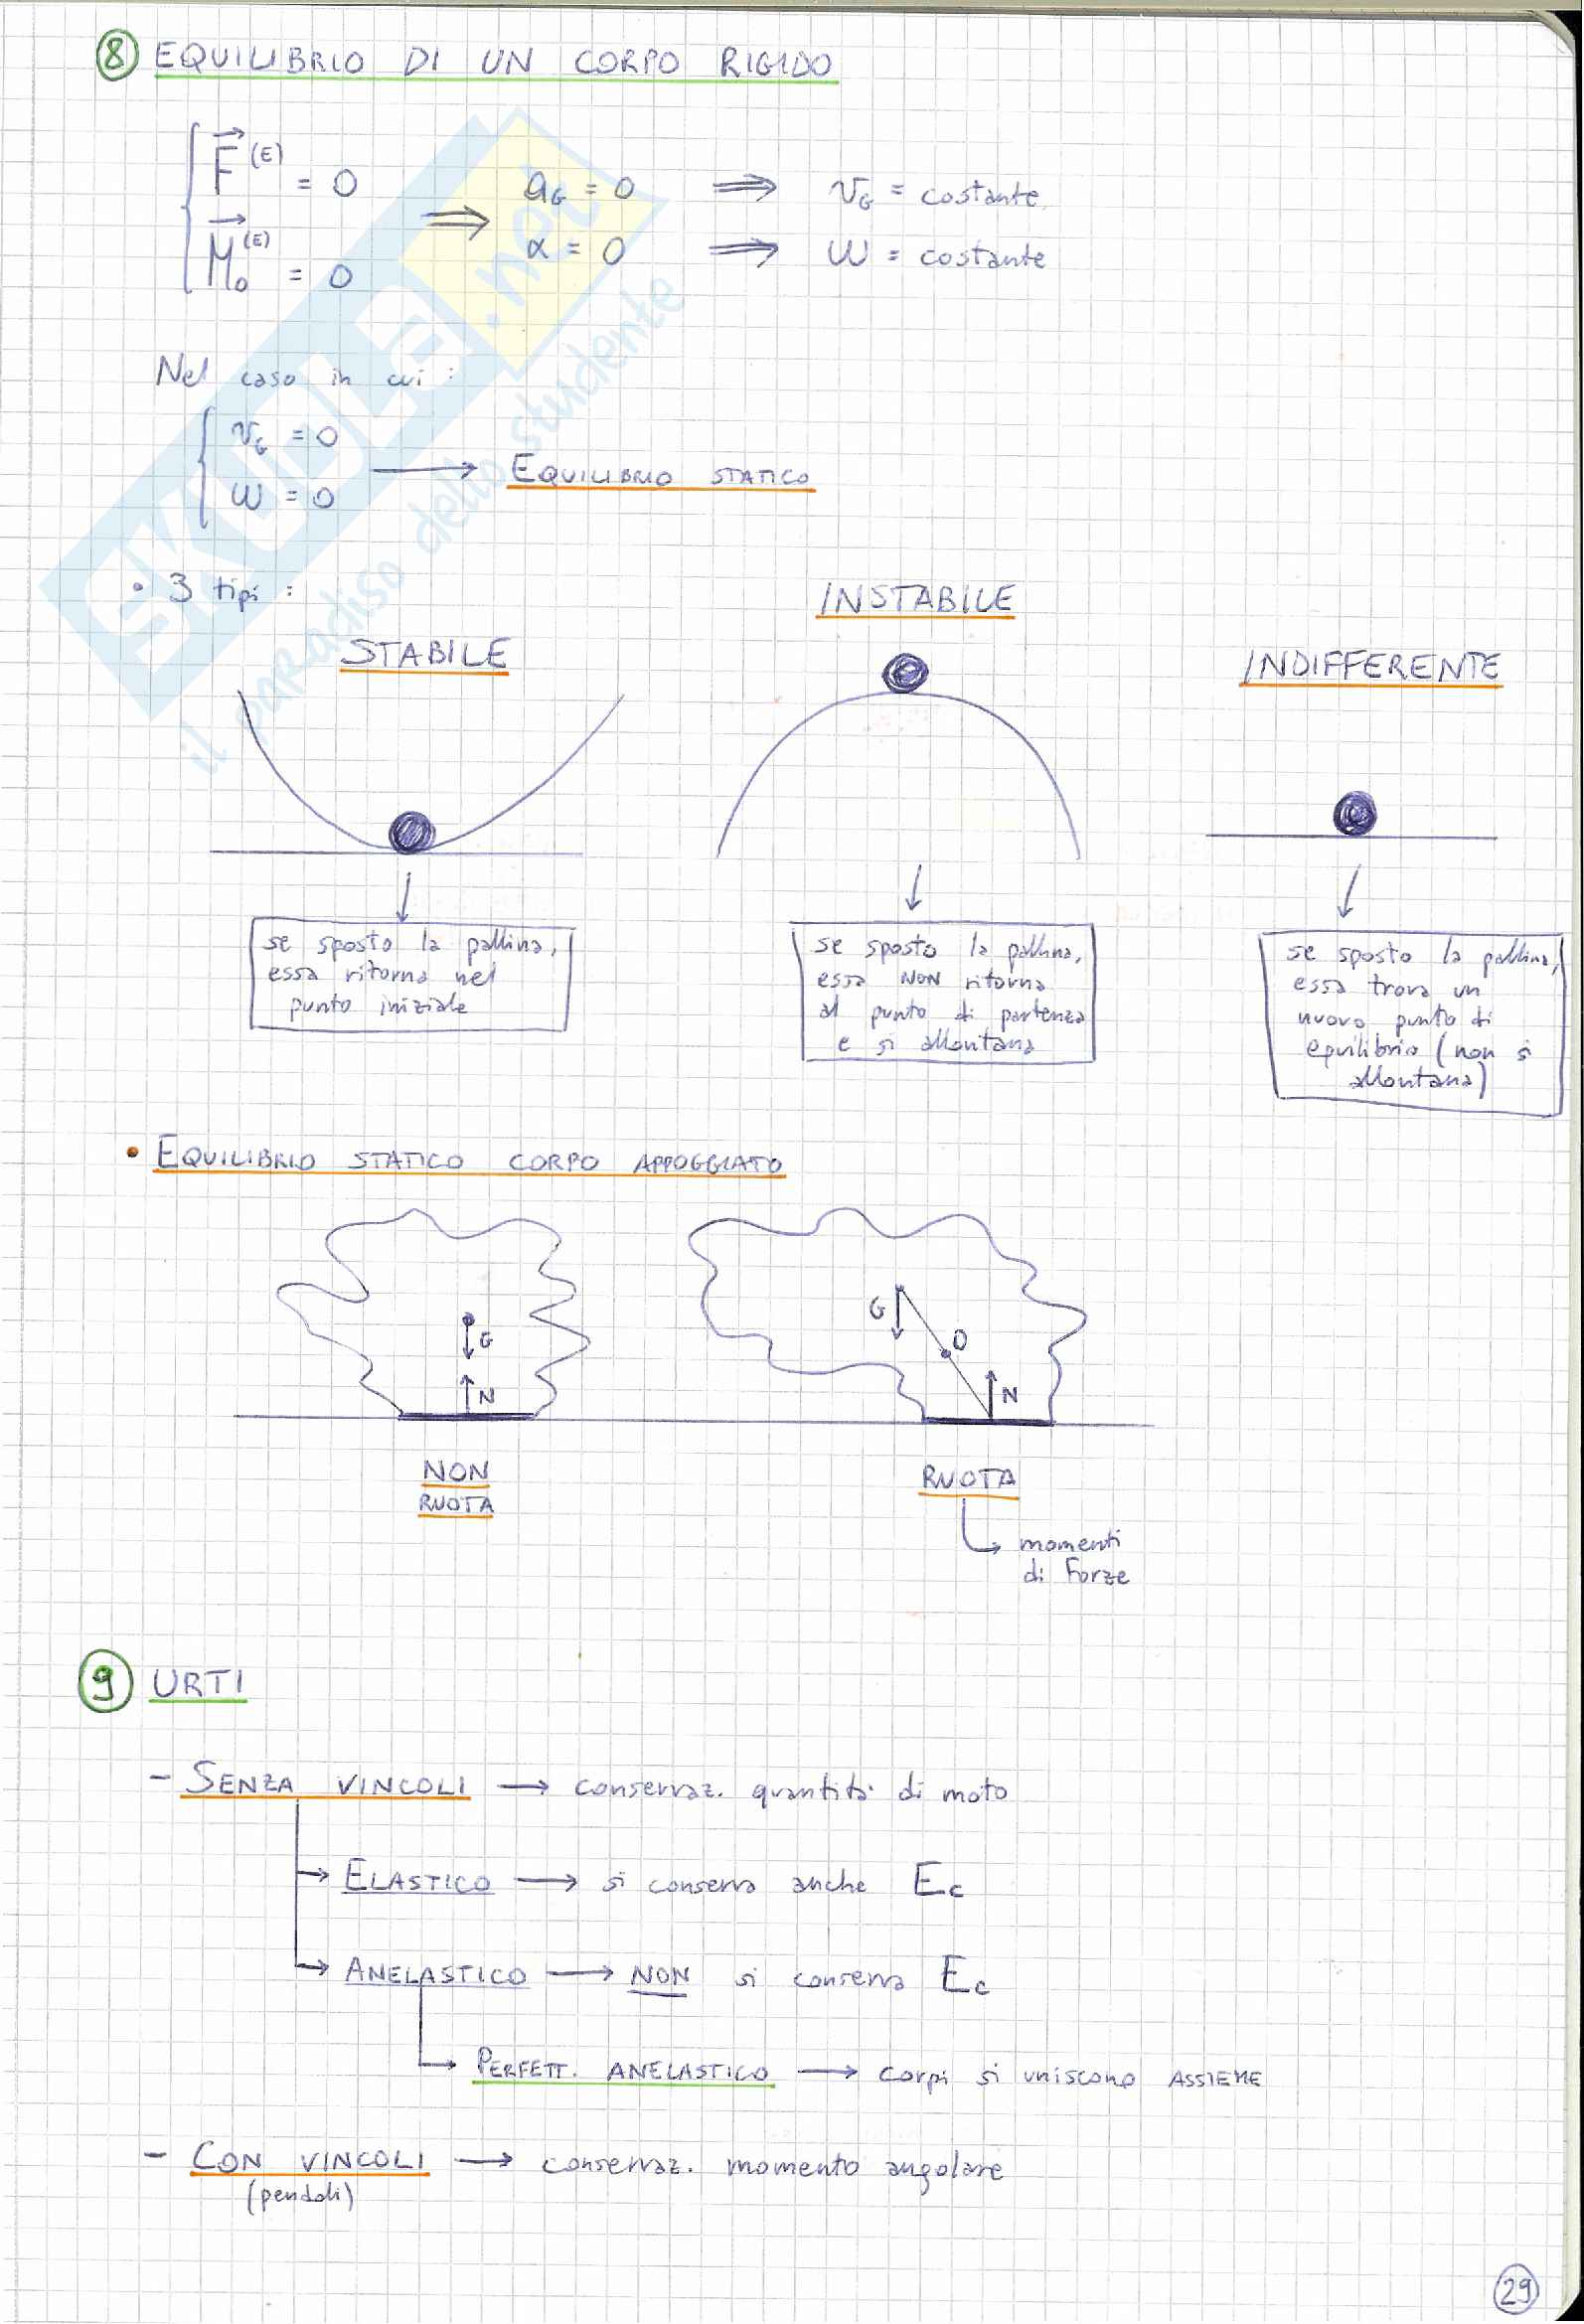 8 EQUILIBRIO DI UN CORPO RIGIDO
F⃗^(E) = 0
M⃗₀^(E) = 0
⟹ a_G = 0 ⟹ v_G = costante
α = 0 ⟹ ω = costante
Nel caso in cui :
v_G = 0
ω = 0
→ EQUILIBRIO STATICO
• 3 tipi :
STABILE
INSTABILE
INDIFFERENTE
se sposto la pallina,
essa ritorna nel
punto iniziale
se sposto la pallina,
essa NON ritorna
al punto di partenza
e si allontana
se sposto la pallina,
essa trova un
nuovo punto di
equilibrio (non si
allontana)
• EQUILIBRIO STATICO CORPO APPOGGIATO
G
N
G
O
N
NON
RUOTA
RUOTA
↳ momenti
di forze
9 URTI
- SENZA VINCOLI → conservaz. quantità di moto
→ ELASTICO → si conserva anche E_c
→ ANELASTICO → NON si conserva E_c
→ PERFETT. ANELASTICO → corpi si uniscono ASSIEME
- CON VINCOLI → conservaz. momento angolare
(pendoli)
29
SKUOLA.net
il paradiso dello studente